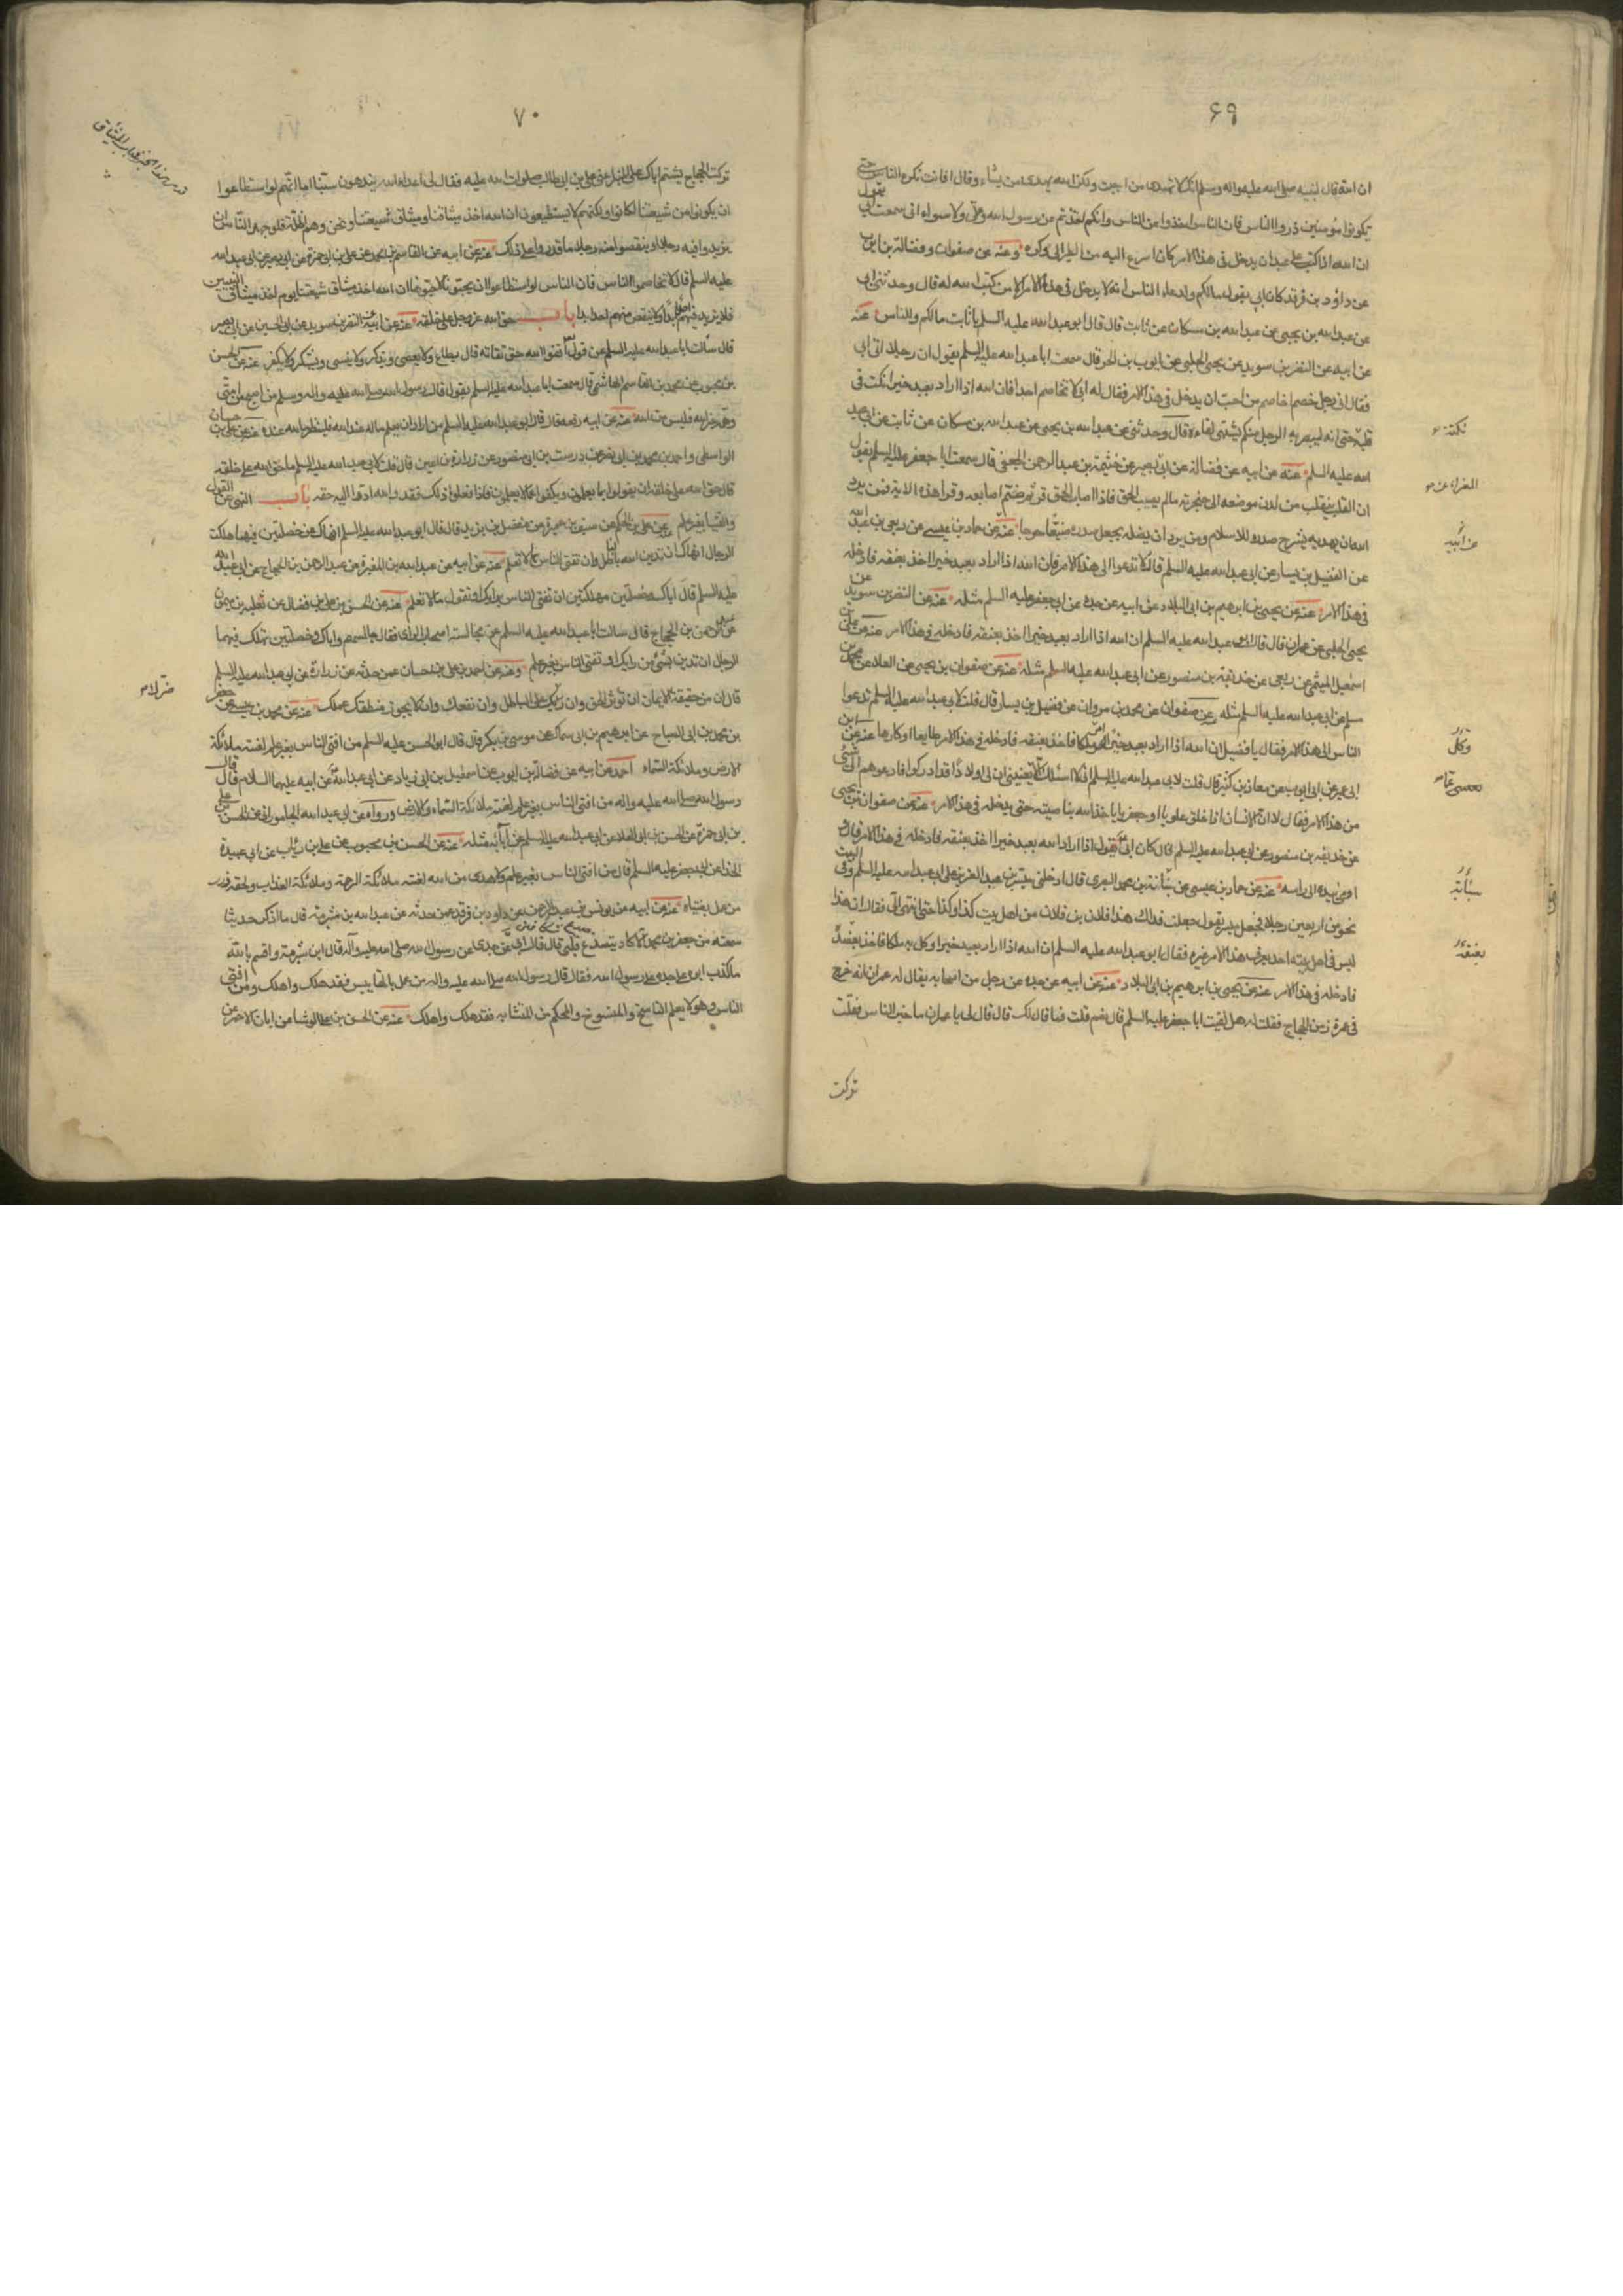 ۶۹
ان الله قال لنبيه صلى الله عليه واله وسلم انك لا تهدى من احببت ولكن الله يهدى من يشاء وقال افانت تكره الناس حتى
يكونوا مؤمنين ذروا الناس فان الناس اخذوا من الناس وانكم اخذتم من رسول الله وعلى ولا سواء انى سمعت ابى يقول
ان الله اذا كتب على عبد ان يدخل فى هذا الامر كان اسرع اليه من الطير الى وكره وعنه عن صفوان وفضالة بن ايوب
عن داود بن فرقد كان ابى يقول مالكم ولدعاء الناس انه لا يدخل فى هذا الامر الا من كتب الله له قال وحدثنى ابى
عن عبد الله بن يحيى عن عبد الله بن مسكان عن ثابت قال قال ابو عبد الله عليه السلم يا ثابت مالكم وللناس عنه
عن ابيه عن النضر بن سويد عن يحيى الحلبى عن ايوب بن الحر قال سمعت ابا عبد الله عليه السلم يقول ان رجلا اتى ابى
فقال انى رجل خصم اخاصم من احب ان يدخل فى هذا الامر فقال له ابى لا تخاصم احدا فان الله اذا اراد بعبد خيرا نكت فى
قلبه حتى انه ليبصر به الرجل منكم يشتهى لقاءه قال وحدثنى عن عبد الله بن يحيى عن عبد الله بن مسكان عن ثابت عن ابى عبد
الله عليه السلم عنه عن ابيه عن فضالة عن ابى بصير عن خثيمة بن عبد الرحمن الجعفى قال سمعت ابا جعفر عليه السلم يقول
ان القلب ينقلب من لدن موضعه الى حنجرته مالم يصب الحق فاذا اصاب الحق قر ثم ضم اصابعه وقرا هذه الاية فمن يرد
الله ان يهديه يشرح صدره للاسلام ومن يرد ان يضله يجعل صدره ضيقا حرجا عنه عن حماد بن عيسى عن ربعى بن عبد الله
عن الفضيل بن يسار عن ابى عبد الله عليه السلم قال لا تدعوا الى هذا الامر فان الله اذا اراد بعبد خيرا اخذ بعنقه فادخله
فى هذا الامر عنه عن يحيى بن ابرهيم بن ابى البلاد عن ابيه عن جده عن ابى جعفر عليه السلم مثله عنه عن النضر بن سويد عن
يحيى الحلبى عن عمران قال قال ابو عبد الله عليه السلم ان الله اذا اراد بعبد خيرا اخذ بعنقه فادخله فى هذا الامر عنه عن على بن
اسمعيل الميثمى عن ربعى عن حذيفة بن منصور عن ابى عبد الله عليه السلم مثله عنه عن صفوان بن يحيى عن العلا عن محمد بن
مسلم عن ابى عبد الله عليه السلم مثله وعن صفوان عن محمد بن مروان عن فضيل بن يسار قال قلت لابى عبد الله عليه السلم ندعوا
الناس الى هذا الامر فقال يا فضيل ان الله اذا اراد بعبد خيرا امر ملكا فاخذ بعنقه فادخله فى هذا الامر طايعا او كارها عنه عن
ابى عمير عن ابى ايوب عن معاذ بن كثير قال قلت لابى عبد الله عليه السلم
من هذا الامر فقال لا ان الانسان اذا خلق علويا او جعفريا ياخذ الله بناصيته حتى يدخله فى هذا الامر عنه عن صفوان بن يحيى
عن حذيفة بن منصور عن ابى عبد الله عليه السلم قال كان ابى يقول اذا اراد الله بعبد خيرا اخذ بعنقه فادخله فى هذا الامر قال و
اومى بيده الى راسه عنه عن حماد بن عيسى عن نباتة بن محمد البصرى قال ادخلنى ميسر بن عبد العزيز على ابى عبد الله عليه السلم وفى البيت
نحو من اربعين رجلا فجعل ميسر يقول جعلت فداك هذا فلان بن فلان من اهل بيت كذا وكذا حتى انتهى الى فقال ان هذا
ليس فى اهل بيته احد يعرف هذا الامر غيره فقال ابو عبد الله عليه السلم ان الله اذا اراد بعبد خيرا وكل به ملكا فاخذ بعضده
فادخله فى هذا الامر عنه عن يحيى بن ابرهيم بن ابى البلاد عنه عن ابيه عن جده عن رجل من اصحابه يقال له عمران انه خرج
فى عمرة زمن الحجاج فقلت له هل لقيت ابا جعفر عليه السلم قال نعم قلت فما قال لك قال قال لى يا عمران ما خبر الناس فقلت
تركت
نكتة
عن ابيه
وكل
نباتة
بعنقه
۷۰
تركت الحجاج يشتم اباك على المنبر اعنى على بن ابى طالب صلوات الله عليه فقال لى اعداء الله يبدهون سبنا اما انهم لو استطاعوا
ان يكونوا من شيعتنا لكانوا ولكنهم لا يستطيعون ان الله اخذ ميثاقنا وميثاق شيعتنا ونحن وهم اظلة فلو جهد الناس ان
يزيدوا فيه رجلا او ينقصوا منه رجلا ما قدروا على ذلك عنه عن ابيه عن القاسم بن محمد عن على بن ابى حمزة عن ابى بصير عن ابى عبد الله
عليه السلم قال لا تخاصموا الناس فان الناس لو استطاعوا ان يحبونا لاحبونا ان الله اخذ ميثاق شيعتنا يوم اخذ ميثاق النبيين
فلا يزيد فيهم احد ابدا ولا ينقص منهم احد ابدا باب حق الله عز وجل على خلقه عنه عن ابيه عن النضر بن سويد عن ابى الحسين عن ابى بصير
قال سألت ابا عبد الله عليه السلم عن قول الله اتقوا الله حق تقاته قال يطاع ولا يعصى ويذكر ولا ينسى ويشكر ولا يكفر عنه عن الحسن
بن محبوب عن محمد بن القاسم الهاشمى قال سمعت ابا عبد الله عليه السلم يقول قال رسول الله صلى الله عليه واله وسلم من اصبح من امتى
وهمه غير الله فليس من الله عنه عن ابيه رفعه قال قال ابو عبد الله عليه السلم من اراد ان يعلم ماله عند الله فلينظر ما لله عنده عنه عن على بن حسان
الواسطى واحمد بن محمد بن ابى نصر عن درست بن ابى منصور عن زرارة بن اعين قال قلت لابى عبد الله عليه السلم ما حق الله على خلقه
قال حق الله على خلقه ان يقولوا بما يعلمون ويكفوا عما لا يعلمون فاذا فعلوا ذلك فقد والله ادوا اليه حقه باب النهى عن القول
والفتيا بغير علم عنه عن على بن الحكم عن سيف بن عميرة عن مفضل بن يزيد قال قال ابو عبد الله عليه السلم انهاك عن خصلتين فيهما هلك
الرجال انهاك ان تدين الله بالباطل وان تفتى الناس بما لا تعلم عنه عن ابيه عن عبد الله بن المغيرة عن عبد الرحمن بن الحجاج عن ابى عبد الله
عليه السلم قال اياك وخصلتين مهلكتين ان تفتى الناس برايك او تقول ما لا تعلم عنه عن الحسن بن على بن فضال عن ثعلبة بن ميمون
عن عبد الرحمن بن الحجاج قال سالت ابا عبد الله عليه السلم عن مجالسة اصحاب الراى فقال جالسهم واياك وخصلتين تهلك فيهما
الرجال ان تدين بشئ من رايك او تفتى الناس بغير علم وعنه عن احمد بن على بن حسان عمن حدثه عن زرارة عن ابى عبد الله عليه السلم
قال ان من حقيقة الايمان ان تؤثر الحق وان ضرك على الباطل وان نفعك وان لا يجوز منطقك عملك عنه عن محمد بن عيسى عن جعفر
بن محمد بن ابى الصباح عن ابرهيم بن ابى سماك عن موسى بن بكر قال قال ابو الحسن عليه السلم من افتى الناس بغير علم لعنته ملائكة
الارض وملائكة السماء احمد عن ابيه عن فضالة بن ايوب عن اسمعيل بن ابى زياد عن ابى عبد الله عن ابيه عليهما السلام قال قال
رسول الله صلى الله عليه واله من افتى الناس بغير علم لعنته ملائكة السماء والارض ورواه عن ابى عبد الله الجامورانى عن الحسن بن على
بن ابى حمزة عن الحسين بن ابى العلا عن ابى عبد الله عليه السلم عن آبائه مثله عنه عن الحسن بن محبوب عن على بن رئاب عن ابى عبيدة
الحذا عن ابى جعفر عليه السلم قال من افتى الناس بغير علم ولا هدى من الله لعنته ملائكة الرحمة وملائكة العذاب ولحقه وزر
من عمل بفتياه عنه عن ابيه عن يونس بن عبد الرحمن عن داود بن فرقد عمن حدثه عن عبد الله بن شبرمة قال ما اذكر حديثا
سمعته من جعفر بن محمد الا كاد يتصدع قلبى قال قال ابى عن جدى عن رسول الله صلى الله عليه وآله قال ابن شبرمة واقسم بالله
ما كذب ابوه على جده ولا جده على رسول الله فقال قال رسول الله صلى الله عليه واله من عمل بالمقاييس فقد هلك واهلك ومن افتى
الناس وهو لا يعلم الناسخ والمنسوخ والمحكم من المتشابه فقد هلك واهلك عنه عن الحسن بن على الوشا عن ابان الاحمر عن
ضرك